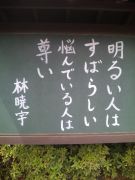 明るい人は
すばらしい
悩んでいる人は
尊い
林暁宇